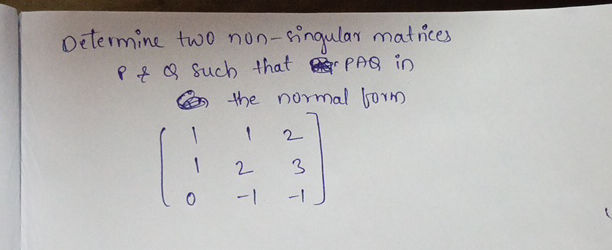 Determine two non-singular matrices
P & Q such that PAQ in
the normal form
[ 1 1 2
1 2 3
0 -1 -1 ]